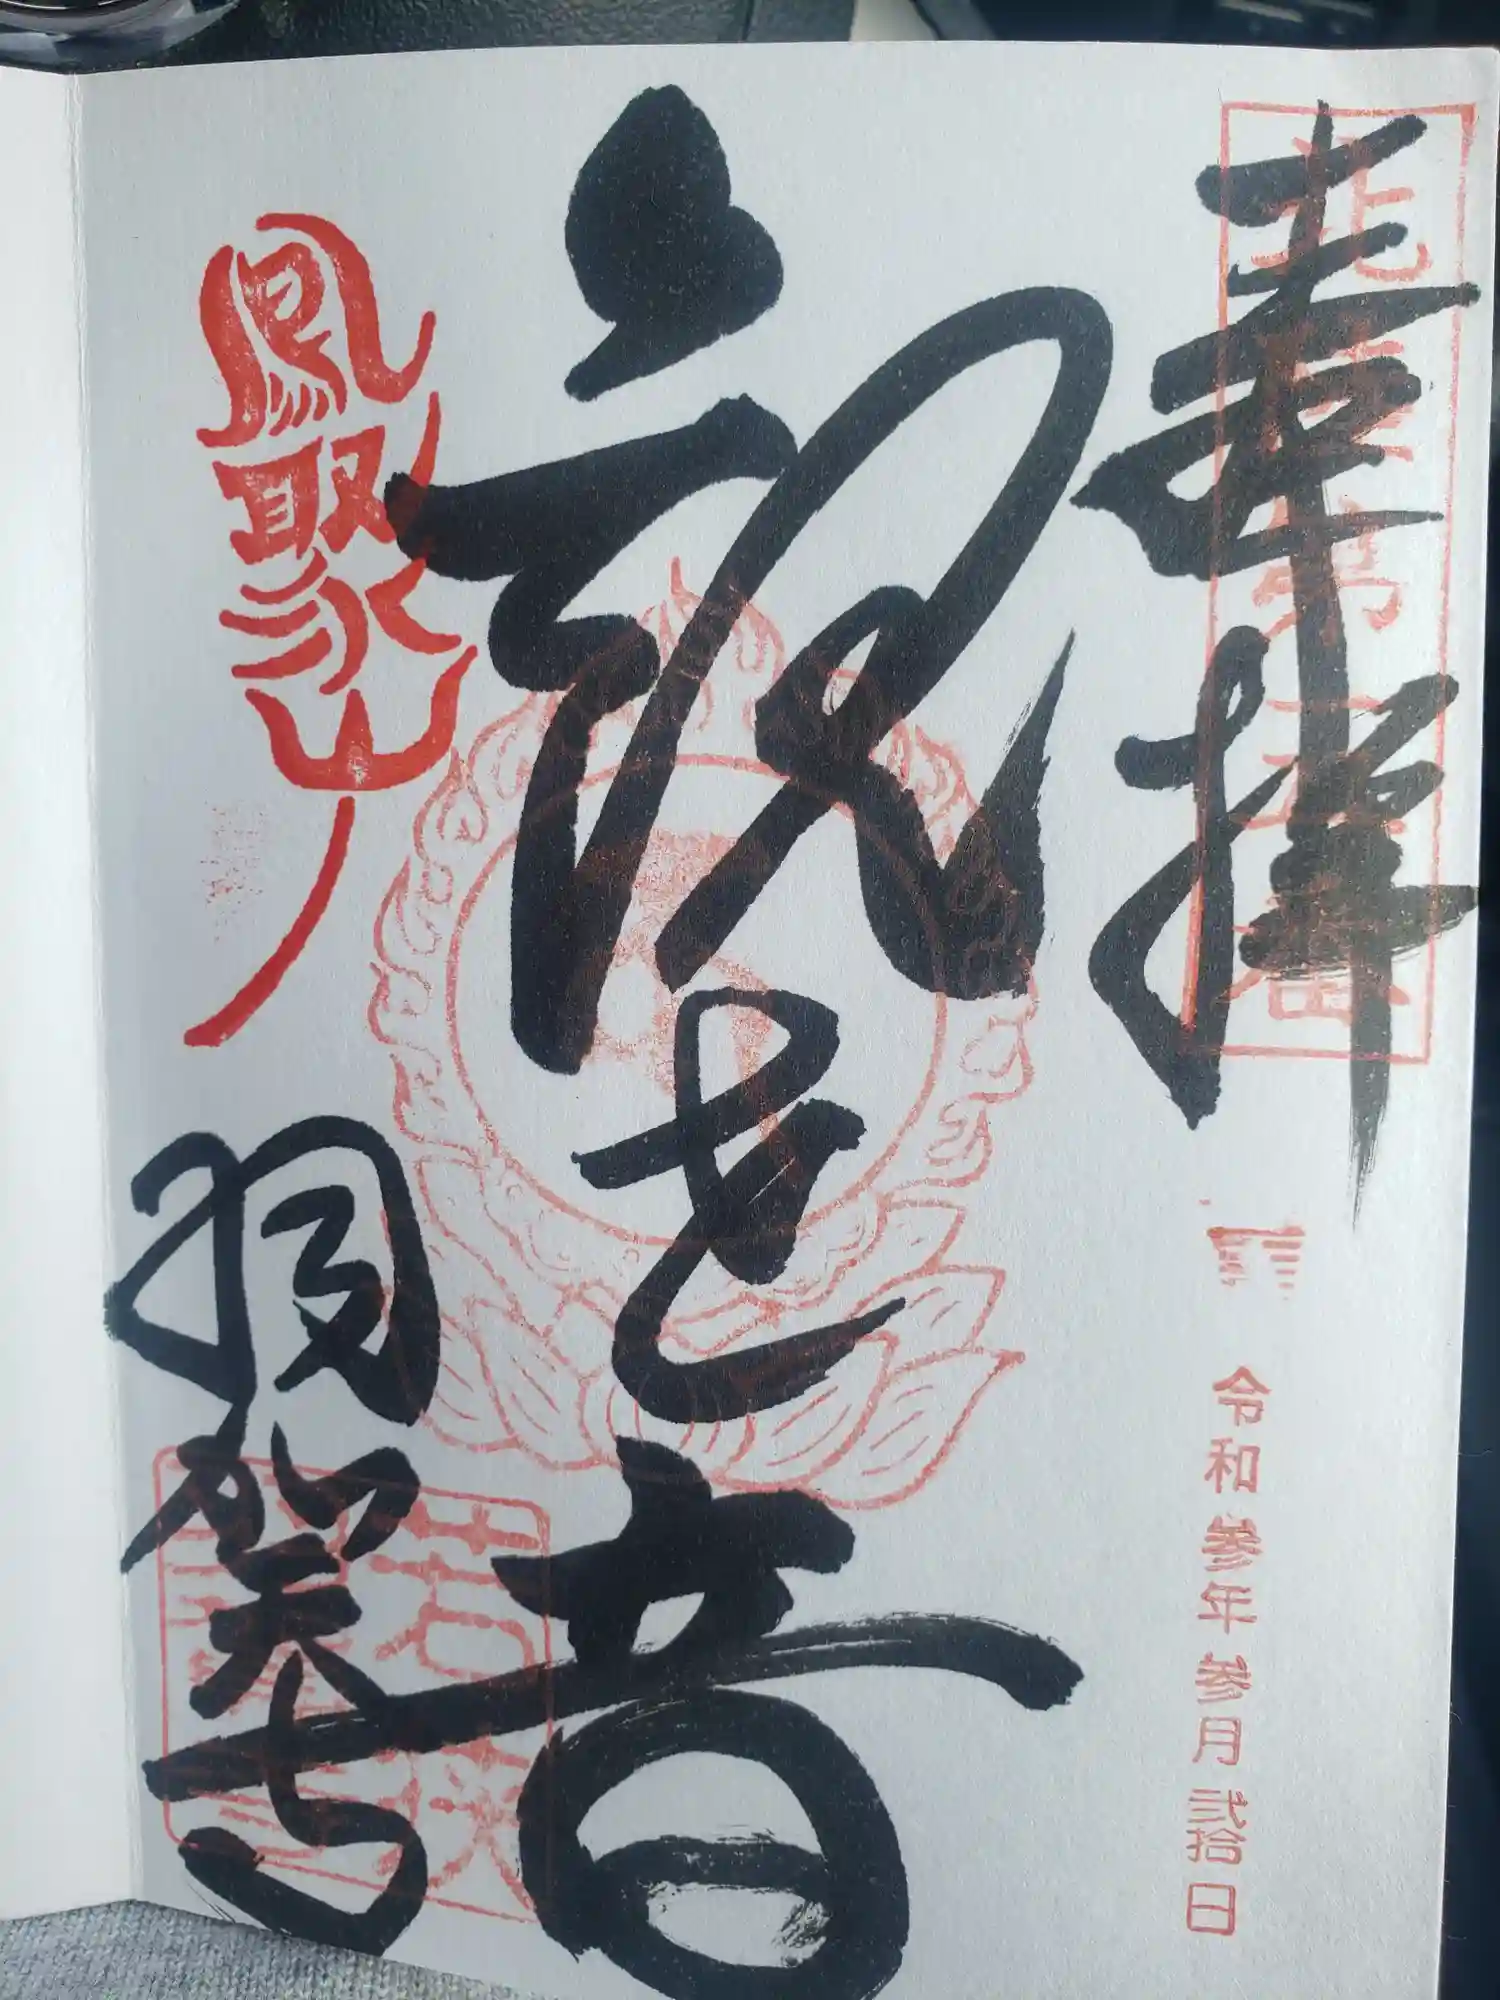 奉拝
令和参年参月弐拾日
観世音
鳳聚山
羽賀寺